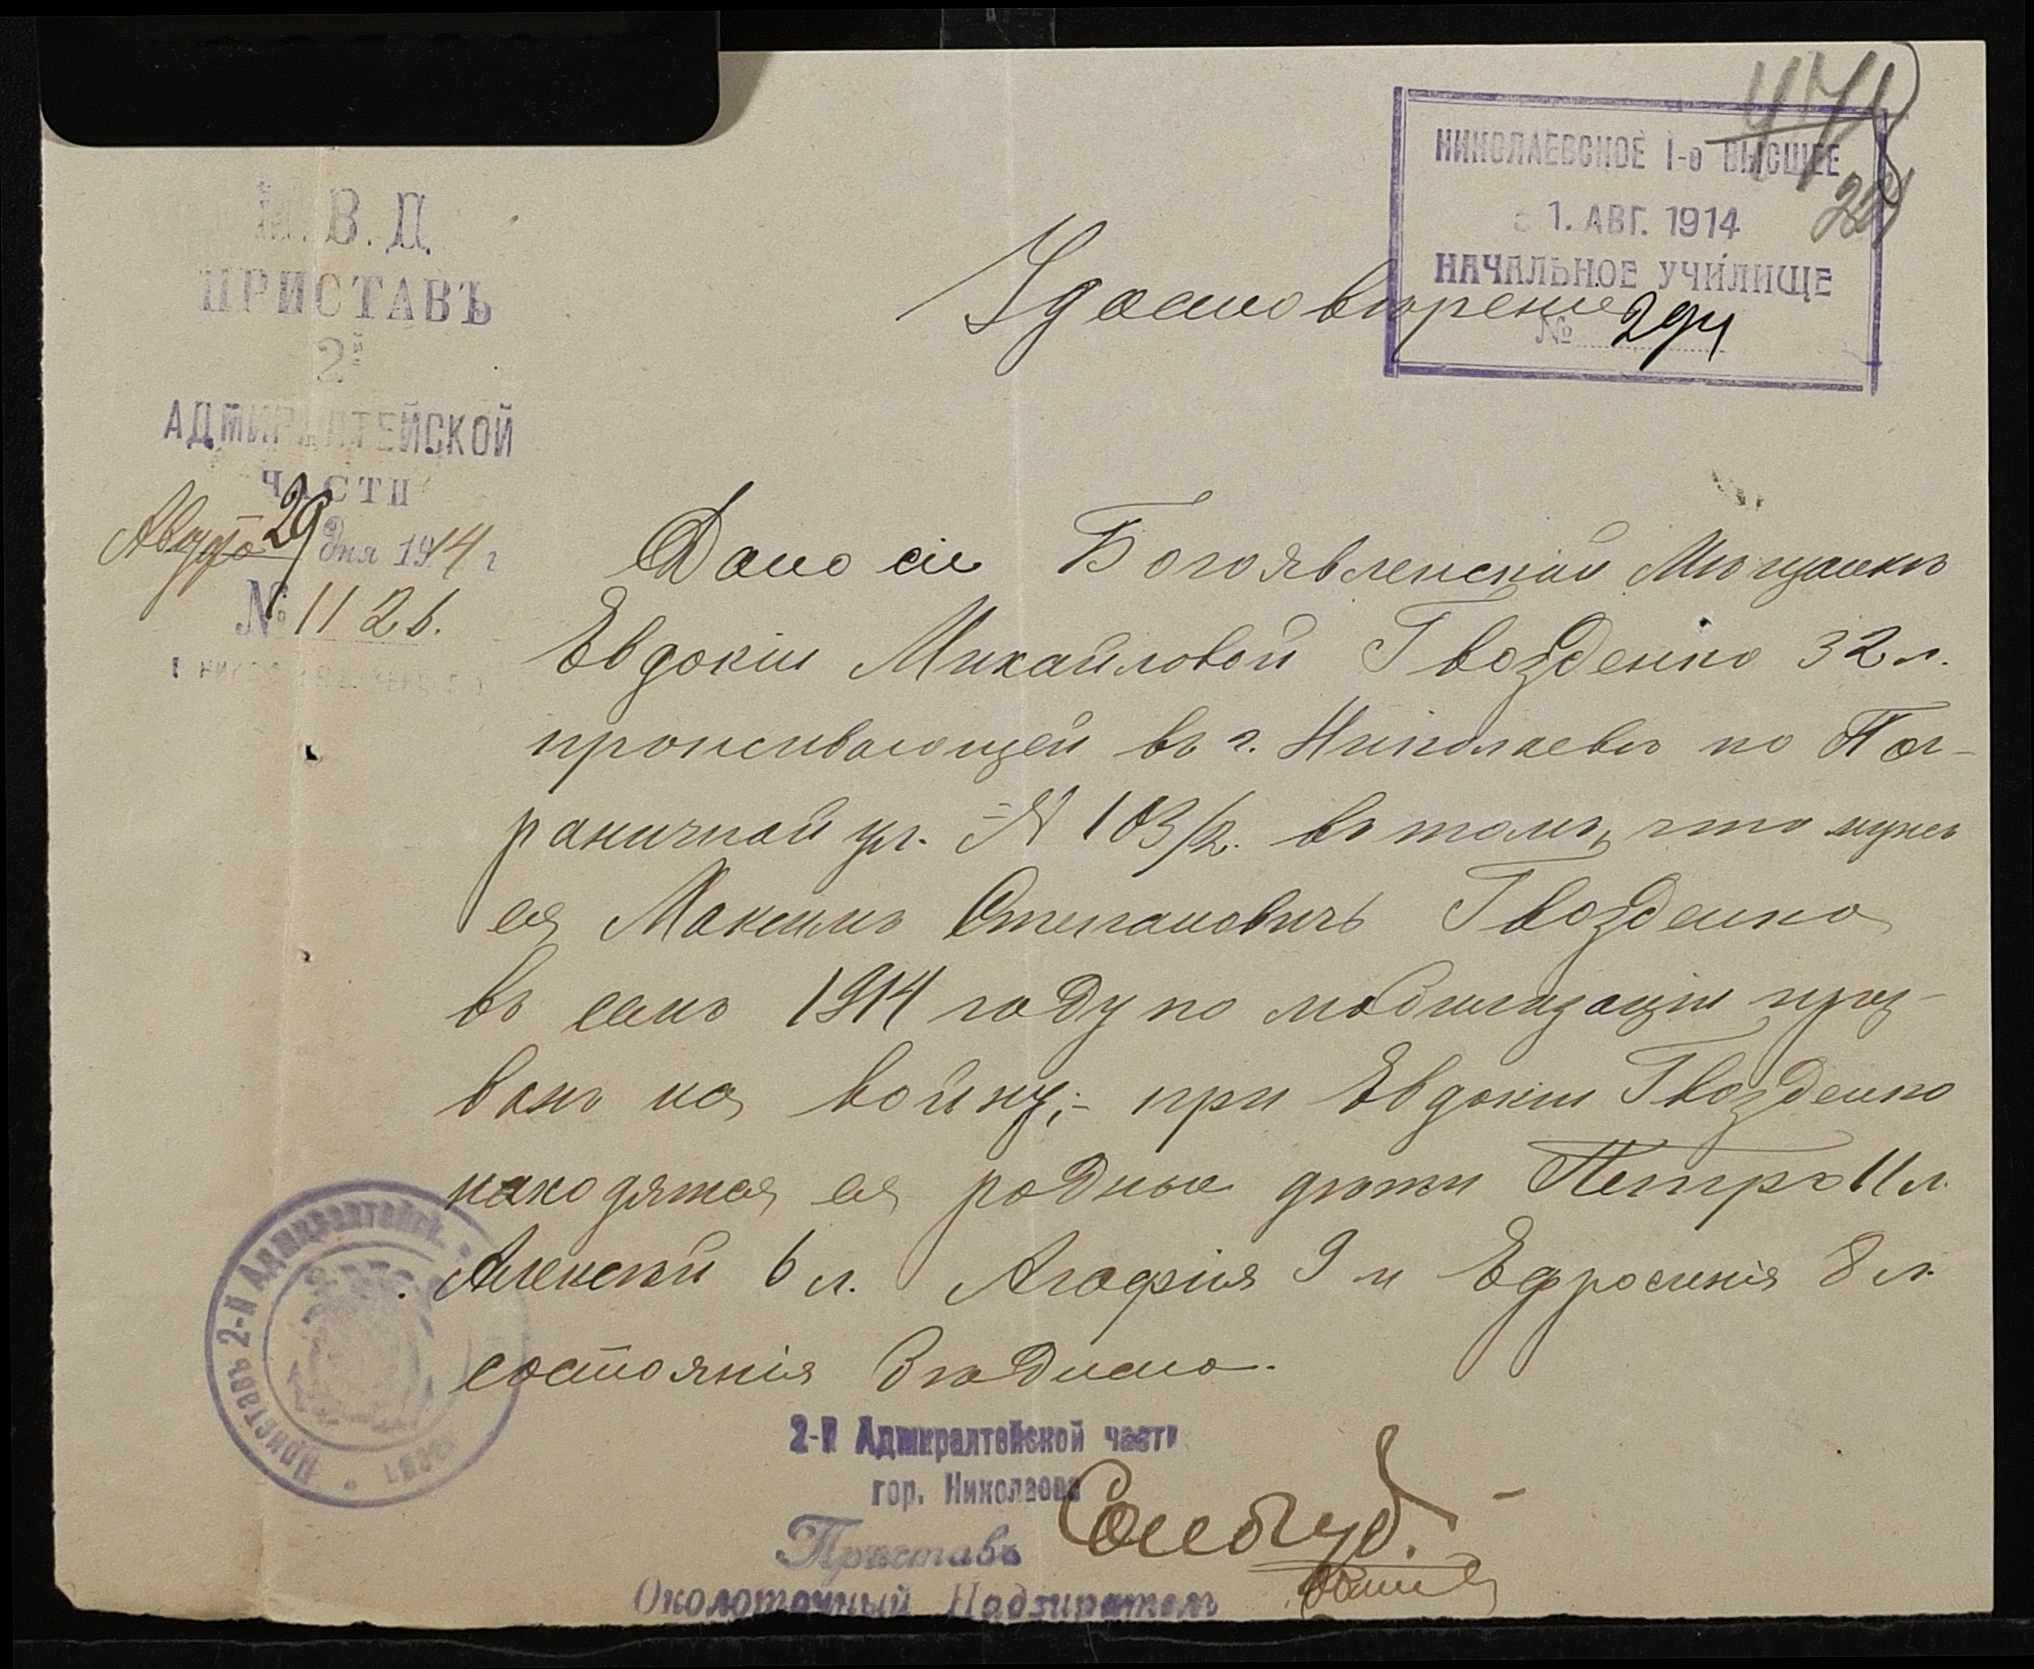 М.В.Д.
ПРИСТАВЪ
2й
АДМИРАЛТЕЙСКОЙ
ЧАСТИ
Августа 29 дня 1914 г
№ 1126.
НИКОЛАЕВСКОЕ 1-е ВЫСШЕЕ
31. АВГ. 1914
НАЧАЛЬНОЕ УЧИЛИЩЕ
№ 294
Удостовѣреніе
Дано сіе Богоявленской Мѣщанкѣ
Евдокіи Михайловой Гвозденко 32 л.
проживающей въ г. Николаевѣ по Пог-
раничной ул. № 103/2. въ томъ, что мужъ
ея Максимъ Степановичъ Гвозденко
въ семъ 1914 году по мобилизаціи приз-
ванъ на войну;- при Евдокіи Гвозденко
находятся ея родные дѣти Петръ 11 л.
Алексѣй 6 л. Агафія 9 и Ефросинія 8 л.
состоянія бѣднаго.
Приставъ 2-й Адмиралтейск.
2-й Адмиралтейской части
гор. Николаева
Приставъ
Околоточный Надзиратель